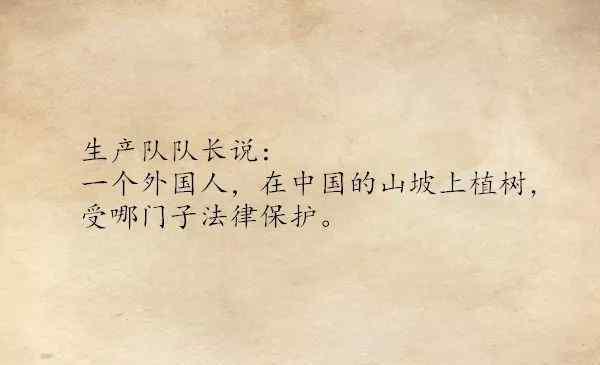 生产队队长说：
一个外国人，在中国的山坡上植树，
受哪门子法律保护。